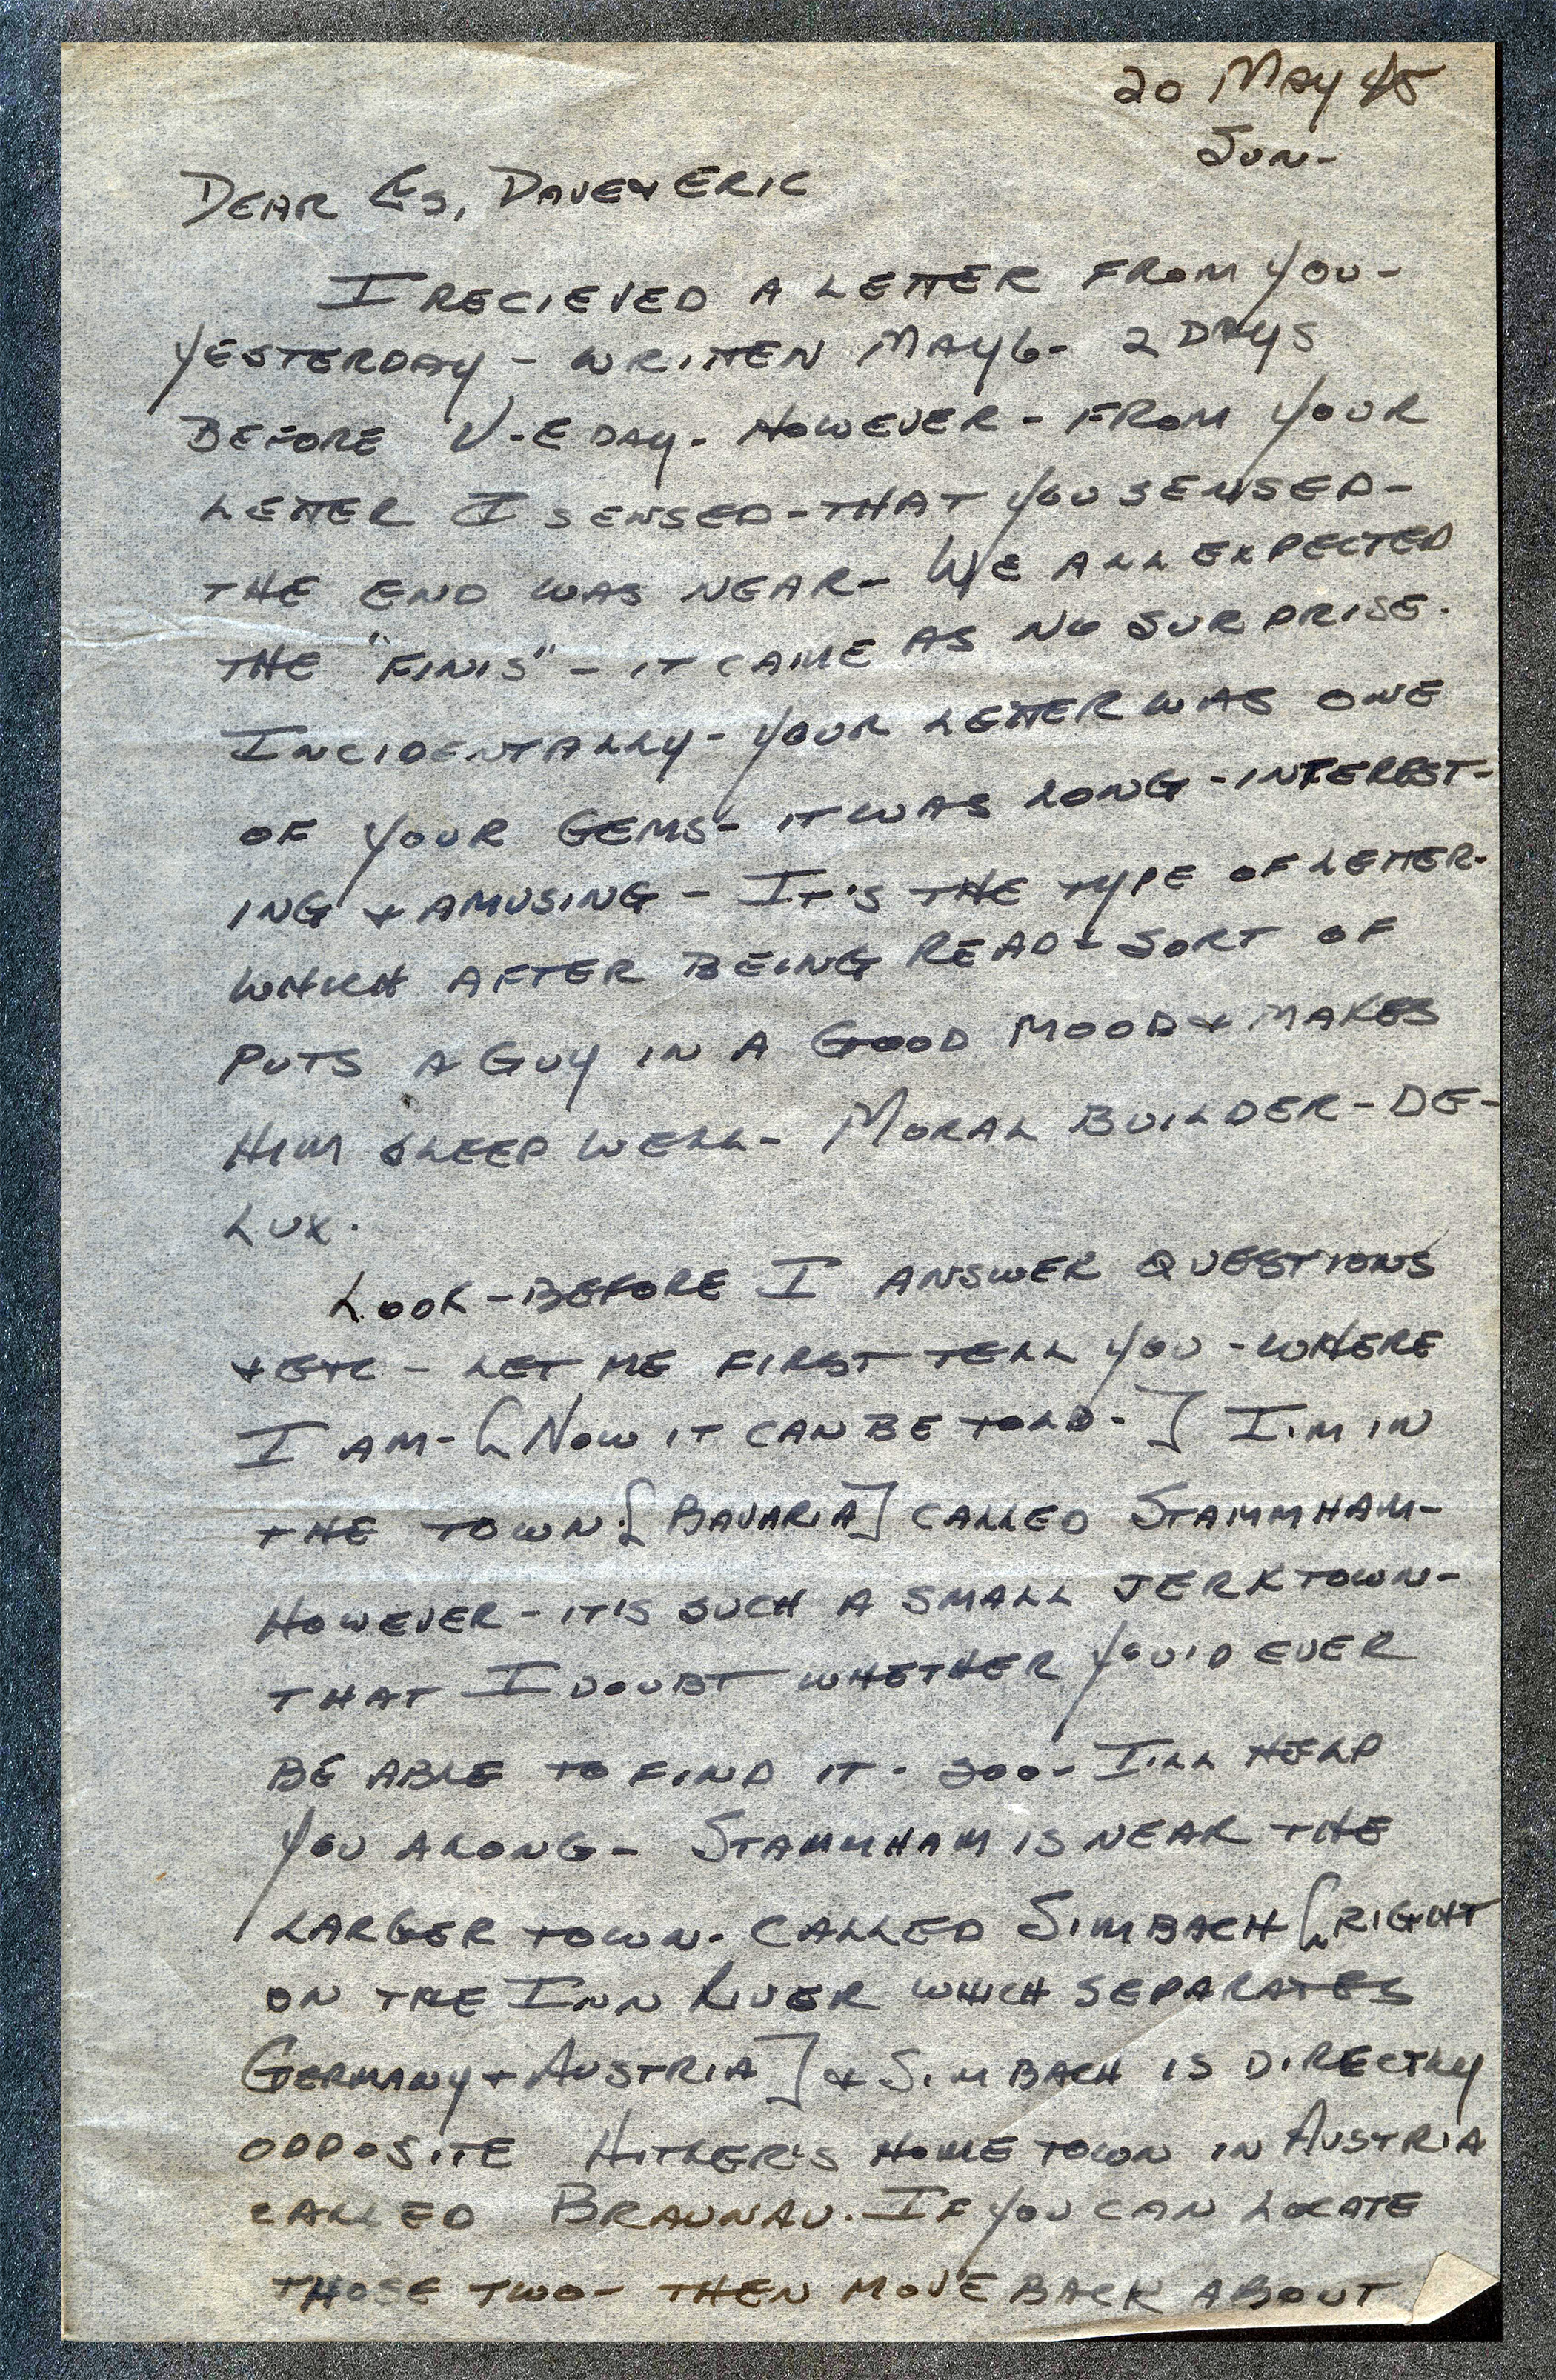 20 MAY 45
SUN-
DEAR ES, DAVE & ERIC
I RECIEVED A LETTER FROM YOU-
YESTERDAY - WRITTEN MAY 6- 2 DAYS
BEFORE V-E DAY- HOWEVER - FROM YOUR
LETTER I SENSED - THAT YOU SENSED-
THE END WAS NEAR- WE ALL EXPECTED
THE "FINIS" - IT CAME AS NO SURPRISE.
INCIDENTALLY - YOUR LETTER WAS ONE
OF YOUR GEMS- IT WAS LONG - INTEREST-
ING & AMUSING - IT'S THE TYPE OF LETTER-
WHICH AFTER BEING READ - SORT OF
PUTS A GUY IN A GOOD MOOD & MAKES
HIM SLEEP WELL- MORAL BUILDER - DE-
LUX.
LOOK - BEFORE I ANSWER QUESTIONS
& ETC - LET ME FIRST TELL YOU - WHERE
I AM- [NOW IT CAN BE TOLD-] I'M IN
THE TOWN [BAVARIA] CALLED STAMMHAM-
HOWEVER - IT'S SUCH A SMALL JERKTOWN-
THAT I DOUBT WHETHER YOU'D EVER
BE ABLE TO FIND IT - SOO- I'LL HELP
YOU ALONG- STAMMHAM IS NEAR THE
LARGER TOWN- CALLED SIMBACH [RIGHT
ON THE INN RIVER WHICH SEPARATES
GERMANY & AUSTRIA] & SIMBACH IS DIRECTLY
OPPOSITE HITLER'S HOME TOWN IN AUSTRIA
CALLED BRAUNAU. IF YOU CAN LOCATE
THOSE TWO- THEN MOVE BACK ABOUT